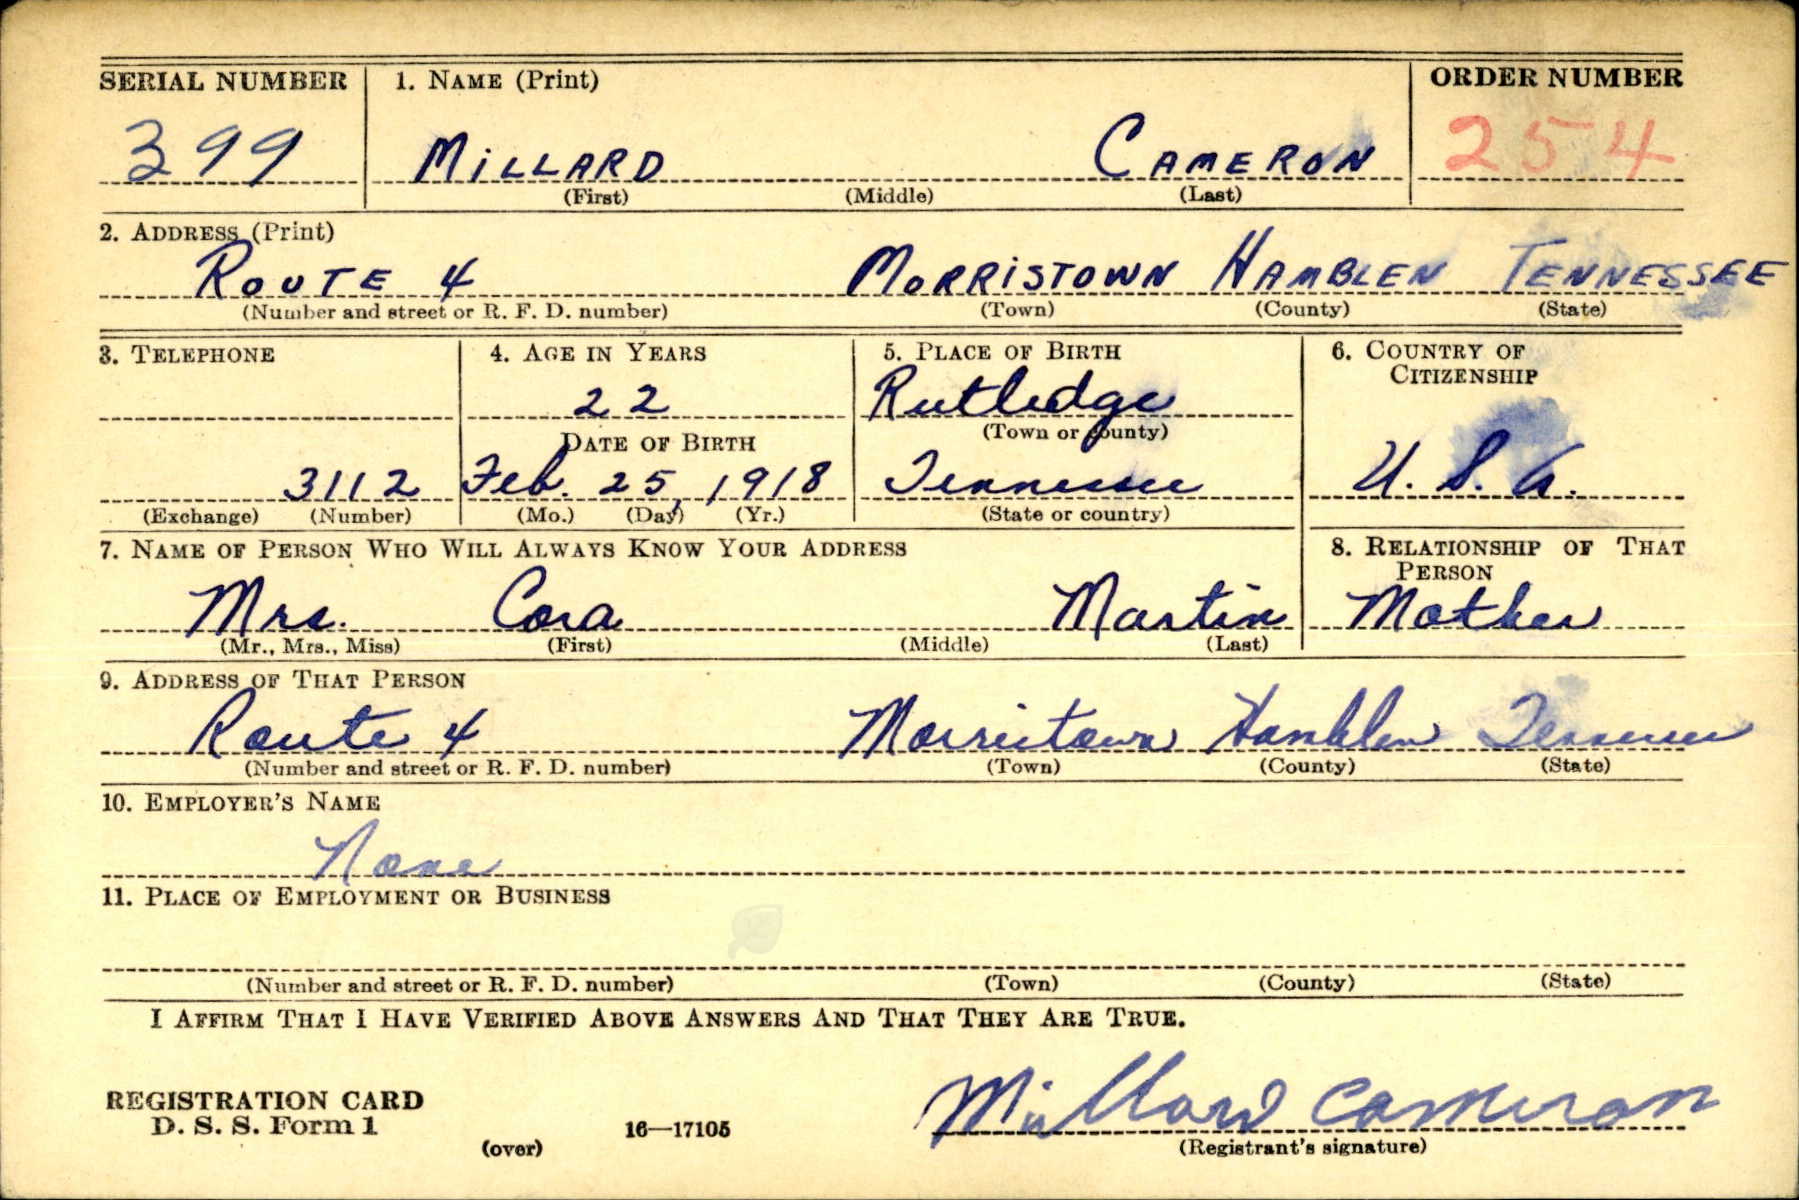 SERIAL NUMBER 1. NAME (Print) ORDER NUMBER
399 MiLLARD CAMERON 254
(First) (Middle) (Last)
2. ADDRESS (Print)
ROUTE 4 MORRiSTOWN HAMBLEN TENNESSEE
(Number and street or R. F. D. number) (Town) (County) (State)
3. TELEPHONE 4. AGE IN YEARS 5. PLACE OF BIRTH 6. COUNTRY OF
CITIZENSHIP
22 Rutledge
DATE OF BIRTH (Town or county)
3112 Feb. 25, 1918 Tennessee U. S. A.
(Exchange) (Number) (Mo.) (Day) (Yr.) (State or country)
7. NAME OF PERSON WHO WILL ALWAYS KNOW YOUR ADDRESS 8. RELATIONSHIP OF THAT
PERSON
Mrs. Cora Martin Mother
(Mr., Mrs., Miss) (First) (Middle) (Last)
9. ADDRESS OF THAT PERSON
Route 4 Morristown Hamblen Tennessee
(Number and street or R. F. D. number) (Town) (County) (State)
10. EMPLOYER'S NAME
None
11. PLACE OF EMPLOYMENT OR BUSINESS
(Number and street or R. F. D. number) (Town) (County) (State)
I AFFIRM THAT I HAVE VERIFIED ABOVE ANSWERS AND THAT THEY ARE TRUE.
REGISTRATION CARD
D. S. S. Form 1 Millard Cameron
(over) 16—17105 (Registrant's signature)